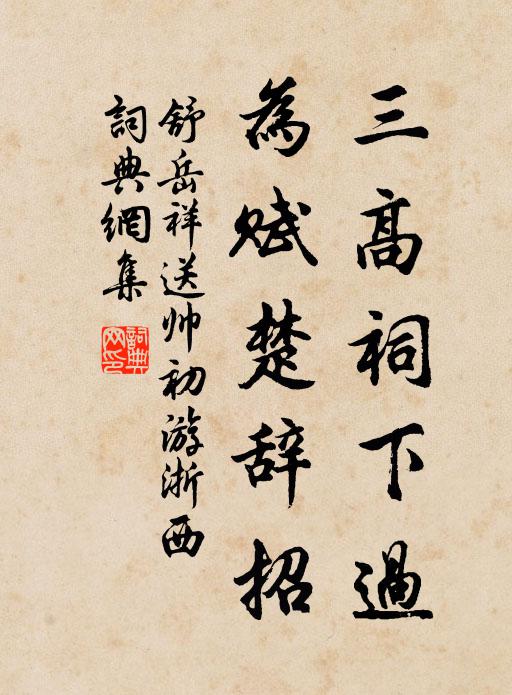 三高祠下過
為赋楚辞招
舒岳祥送帅初游浙西
詞典網集
詞典網印